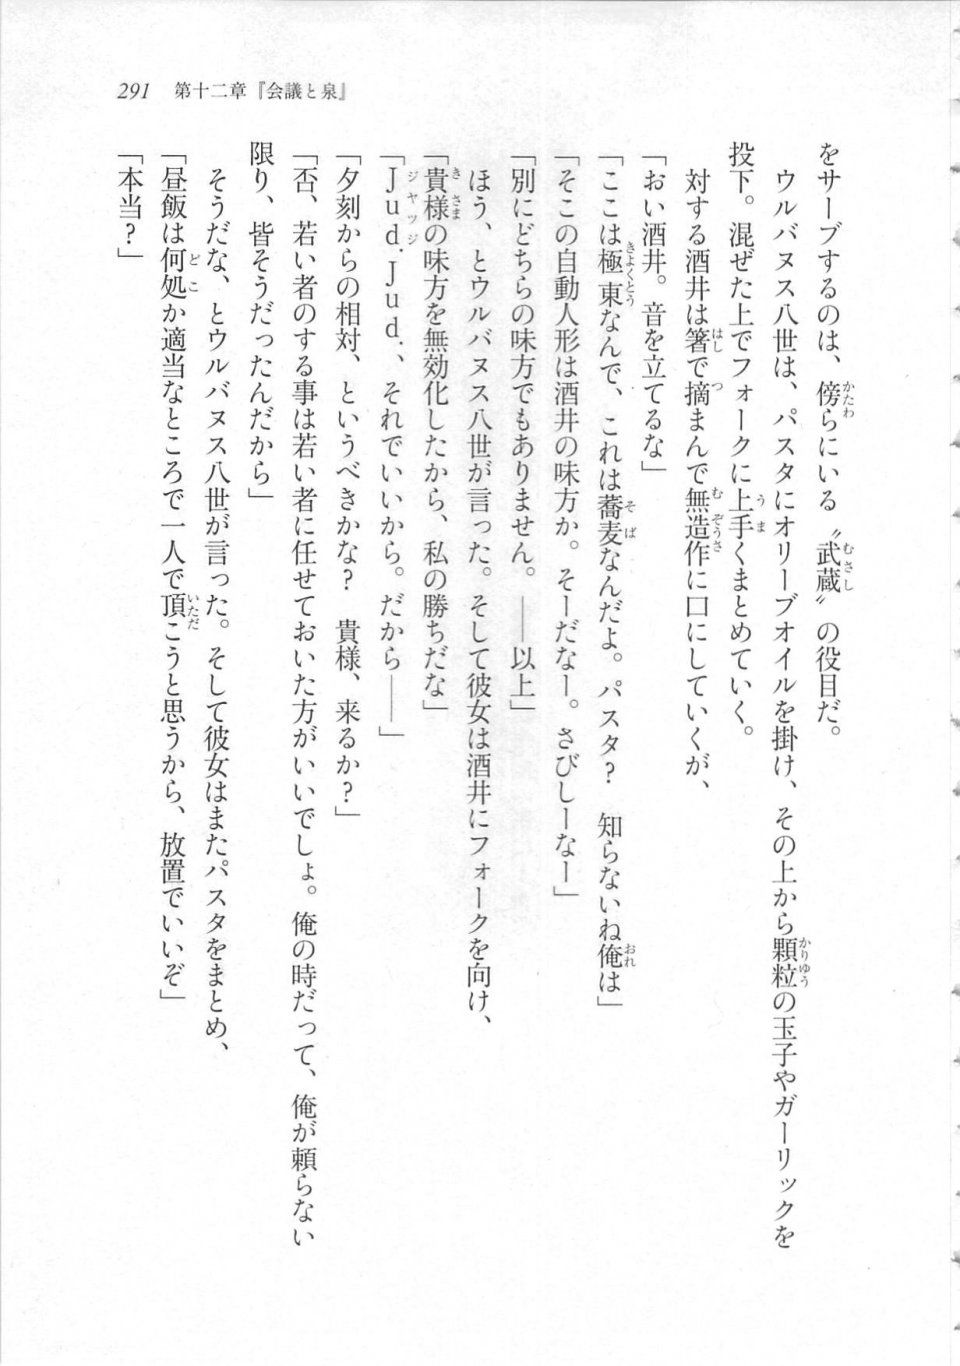 291 第十二章『会議と泉』
をサーブするのは、傍らにいる〝武蔵〟の役目だ。
　ウルバヌス八世は、パスタにオリーブオイルを掛け、その上から顆粒の玉子やガーリックを
投下。混ぜた上でフォークに上手くまとめていく。
　対する酒井は箸で摘まんで無造作に口にしていくが、
「おい酒井。音を立てるな」
「ここは極東なんで、これは蕎麦なんだよ。パスタ？　知らないね俺は」
「そこの自動人形は酒井の味方か。そーだなー。さびしーなー」
「別にどちらの味方でもありません。――以上」
　ほう、とウルバヌス八世が言った。そして彼女は酒井にフォークを向け、
「貴様の味方を無効化したから、私の勝ちだな」
「Ｊｕｄ．Ｊｕｄ．、それでいいから。だから――」
「夕刻からの相対、というべきかな？　貴様、来るか？」
「否、若い者のする事は若い者に任せておいた方がいいでしょ。俺の時だって、俺が頼らない
限り、皆そうだったんだから」
　そうだな、とウルバヌス八世が言った。そして彼女はまたパスタをまとめ、
「昼飯は何処か適当なところで一人で頂こうと思うから、放置でいいぞ」
「本当？」